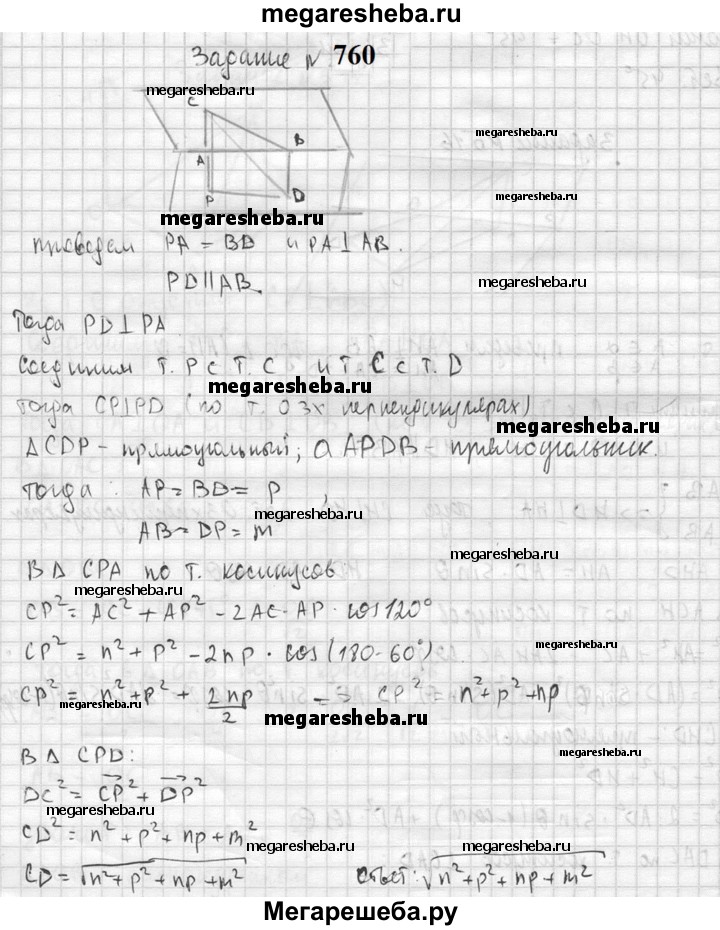 megaresheba.ru
Задание № 760
megaresheba.ru
C
megaresheba.ru
A
B
P
D
megaresheba.ru
проведем PA = BD и PA⊥AB.
megaresheba.ru
PD∥AB.
Тогда PD⊥PA
Соединим т. P с т. C и т. C с т. D
megaresheba.ru
тогда CP⊥PD (по т. О 3х перпендикулярах)
megaresheba.ru
ΔCDP - прямоугольный; а APDB - прямоугольник.
тогда: AP = BD = p,
megaresheba.ru
AB = DP = m
megaresheba.ru
В Δ CPA по т. косинусов:
megaresheba.ru
CP² = AC² + AP² - 2AC·AP·cos120°
CP² = n² + p² - 2np·cos(180-60°)
megaresheba.ru
CP² = n² + p² + 2np/2 => CP² = n² + p² + np
megaresheba.ru
megaresheba.ru
В Δ CPD:
megaresheba.ru
DC² = CP² + DP²
megaresheba.ru
CD² = n² + p² + np + m²
megaresheba.ru
CD = √n² + p² + np + m² Ответ: √n² + p² + np + m²
Мегарешеба.ру